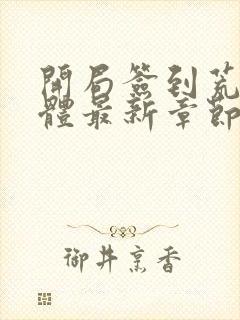 開局簽到荒
體最新章節
御井烹香